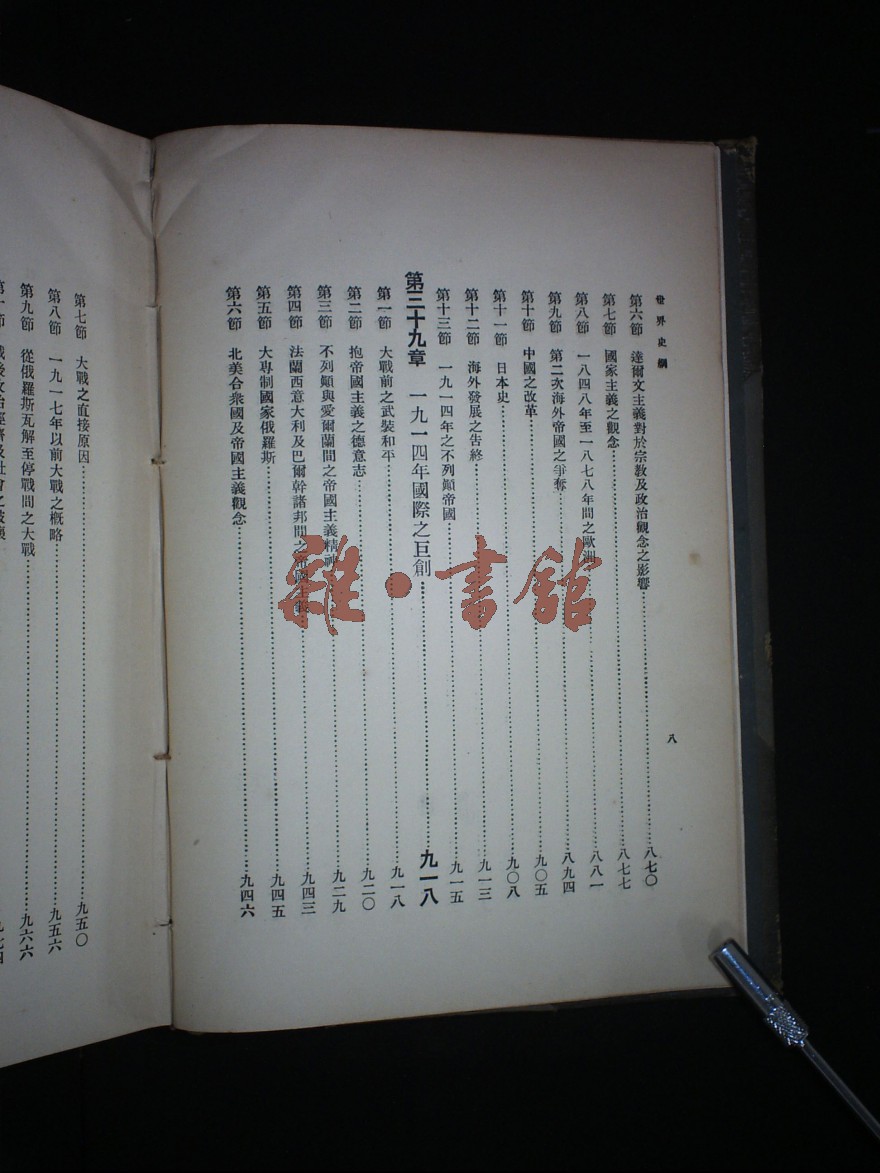 世界史綱
第六節 達爾文主義對於宗教及政治觀念之影響……八七〇
第七節 國家主義之觀念……八七七
第八節 一八四八年至一八七八年間之歐洲……八八一
第九節 第二次海外帝國之爭奪……八九四
第十節 中國之改革……九〇五
第十一節 日本史……九〇八
第十二節 海外發展之告終……九一三
第十三節 一九一四年之不列顛帝國……九一五
第三十九章 一九一四年國際之巨創……九一八
第一節 大戰前之武裝和平……九一八
第二節 抱帝國主義之德意志……九二〇
第三節 不列顛與愛爾蘭間之帝國主義精神……九二九
第四節 法蘭西意大利及巴爾幹諸邦間之帝國主義……九四三
第五節 大專制國家俄羅斯……九四五
第六節 北美合衆國及帝國主義觀念……九四六
八
第七節 大戰之直接原因……九五〇
第八節 一九一七年以前大戰之概略……九五六
第九節 從俄羅斯瓦解至停戰間之大戰……九六六
雜·書館